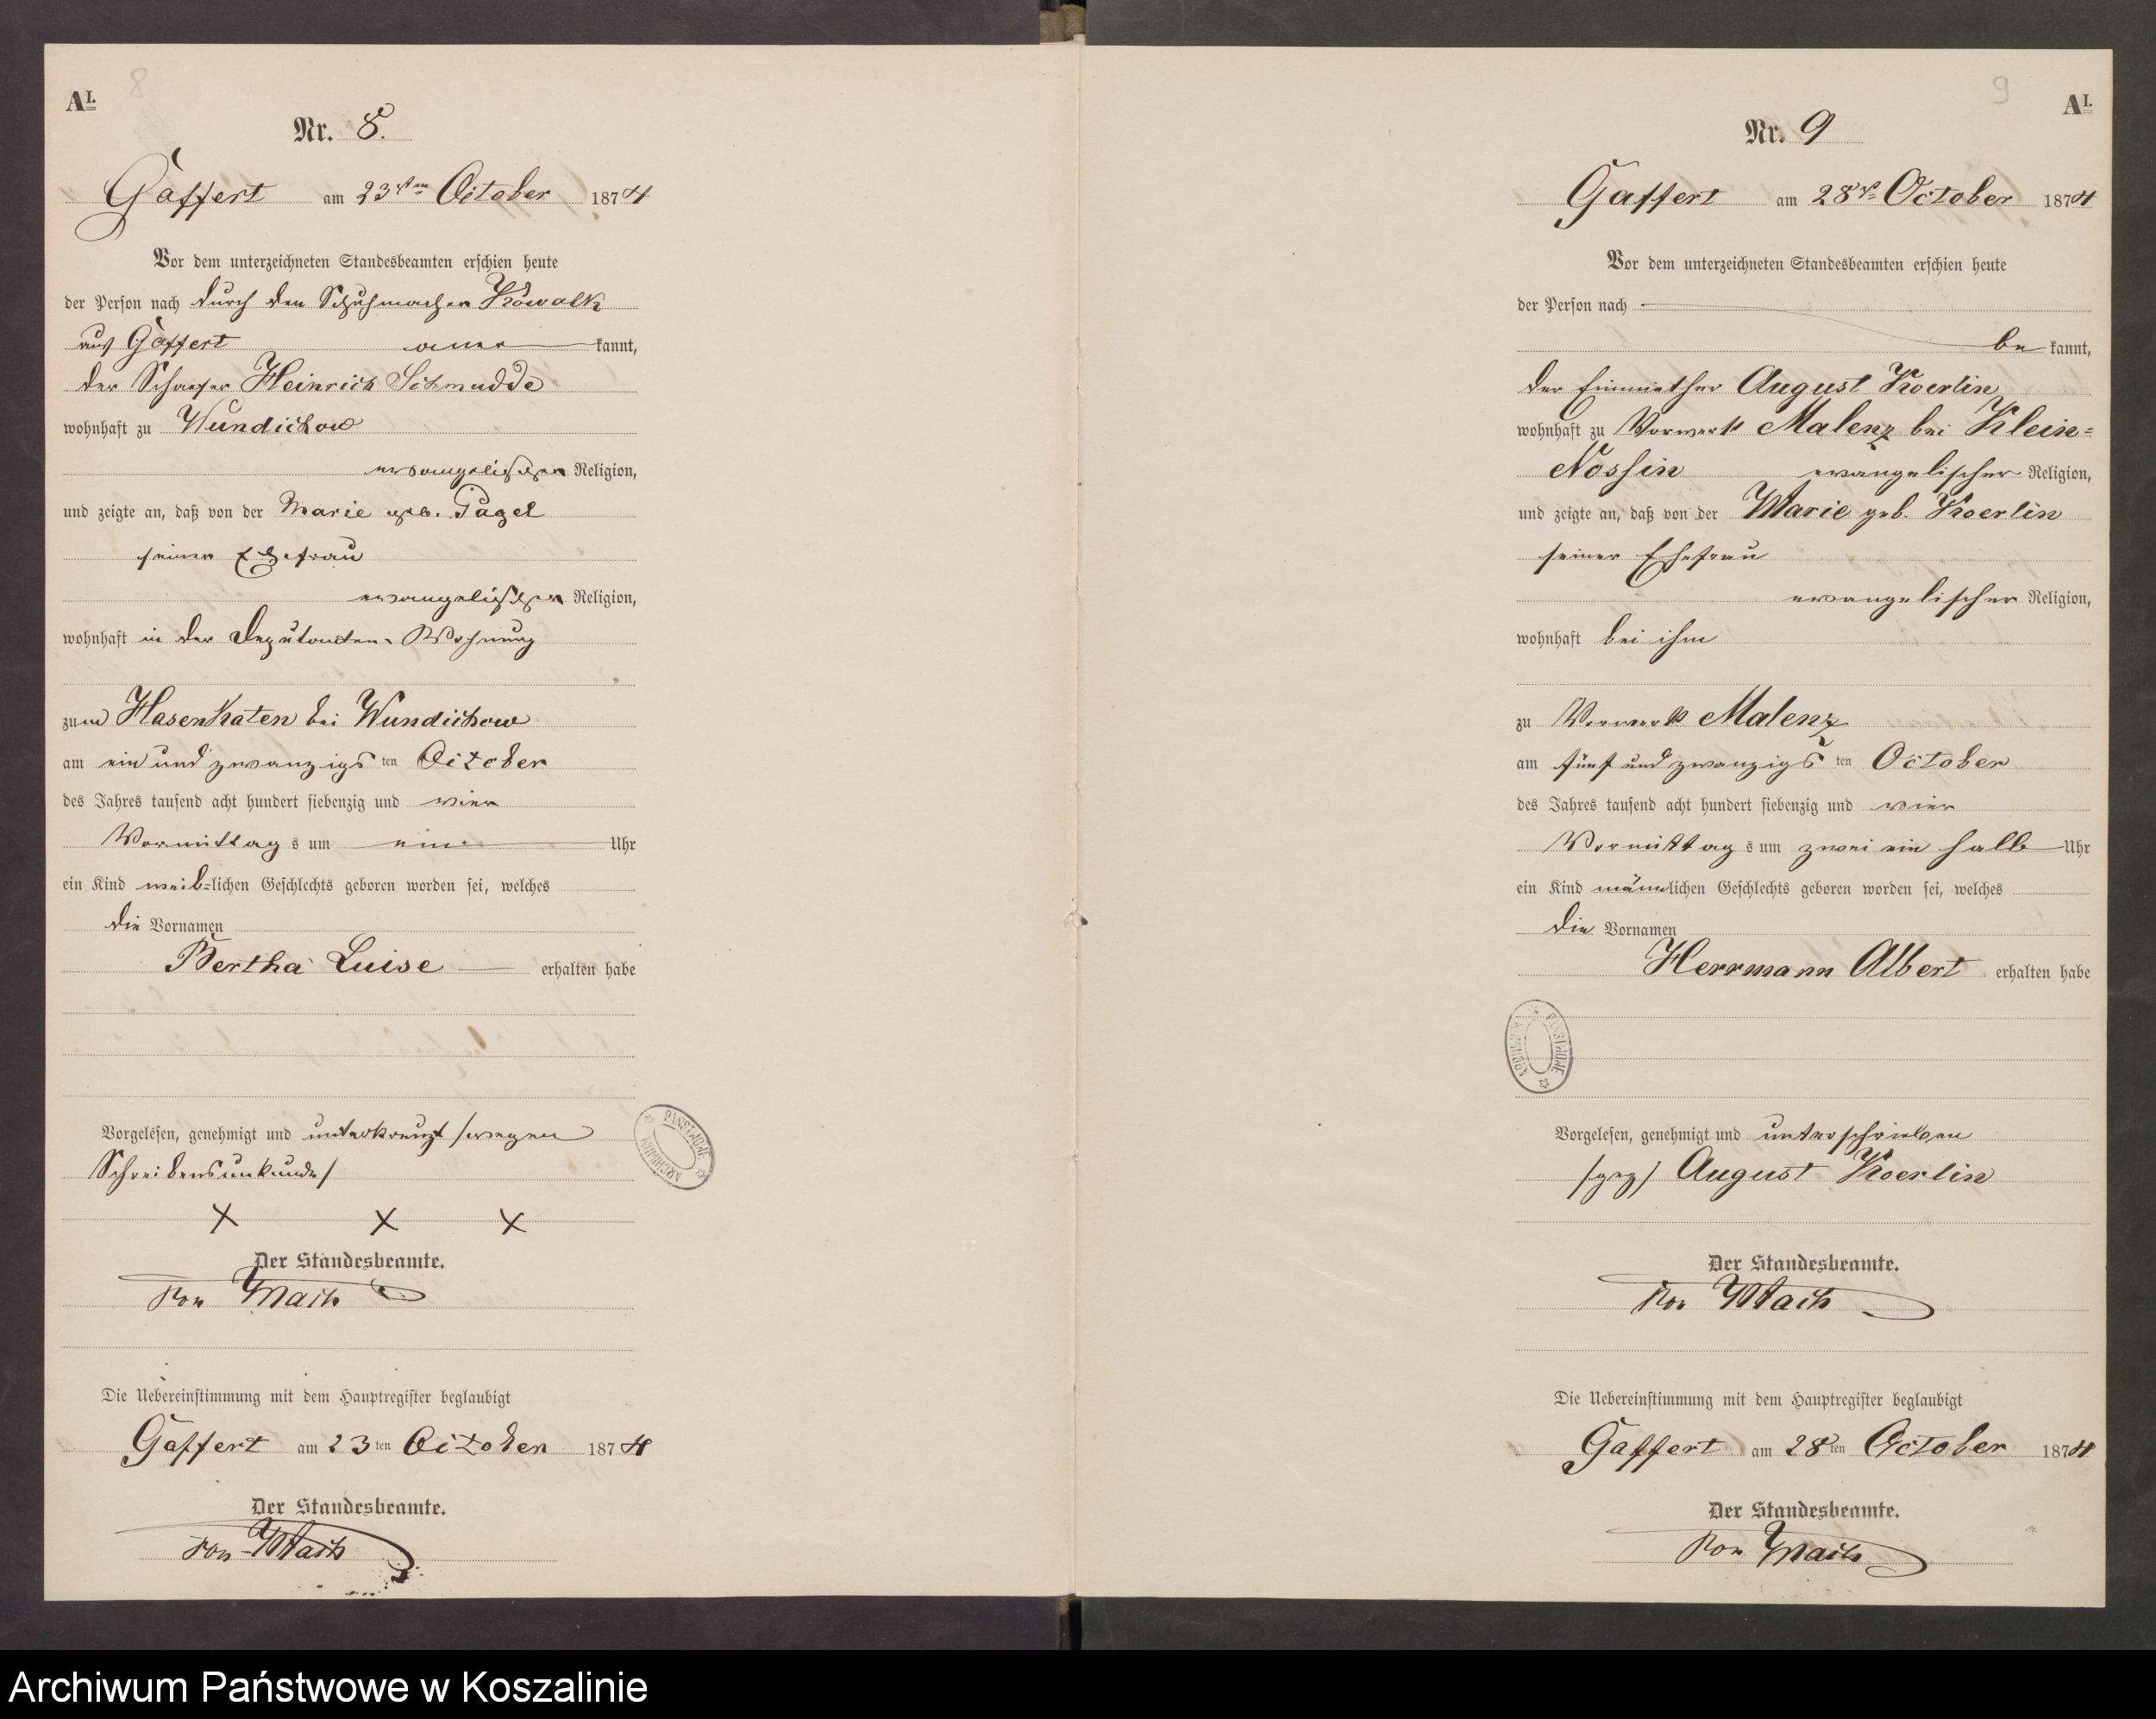 8
A I.
Nr. 8.
Gaffert am 23sten October 1874
Vor dem unterzeichneten Standesbeamten erschien heute
der Person nach durch den Schuhmacher Kowalk
aus Gaffert aner kannt,
der Schaefer Heinrich Schmudde
wohnhaft zu Wundichow
evangelischer Religion,
und zeigte an, daß von der Marie geb. Pagel
seiner Ehefrau
evangelischer Religion,
wohnhaft in der Deputanten-Wohnung
zum Hasenkaten bei Wundichow
am ein und zwanzigsten October
des Jahres tausend acht hundert siebenzig und vier
Vormittags um ein Uhr
ein Kind weib=lichen Geschlechts geboren worden sei, welches
die Vornamen
Bertha Luise erhalten habe
Vorgelesen, genehmigt und unterkreuzt /wegen
Schreibensunkunde/
X X X
Der Standesbeamte.
von Mach
Die Uebereinstimmung mit dem Hauptregister beglaubigt
Gaffert am 23ten October 1874
Der Standesbeamte.
von Mach
PAŃSTWOWE ARCHIWUM
9
A I.
Nr. 9
Gaffert am 28st October 1874
Vor dem unterzeichneten Standesbeamten erschien heute
der Person nach
be kannt,
der Einmiether August Koerlin
wohnhaft zu Vorwerk Malenz bei Klein=
Nossin evangelischer Religion,
und zeigte an, daß von der Marie geb. Koerlin
seiner Ehefrau
evangelischer Religion,
wohnhaft bei ihm
zu Vorwerk Malenz
am fünf und zwanzigsten October
des Jahres tausend acht hundert siebenzig und vier
Vormittags um zwei ein halb Uhr
ein Kind männlichen Geschlechts geboren worden sei, welches
die Vornamen
Herrmann Albert erhalten habe
PAŃSTWOWE ARCHIWUM
Vorgelesen, genehmigt und unterschrieben
/gez/ August Koerlin
Der Standesbeamte.
von Mach
Die Uebereinstimmung mit dem Hauptregister beglaubigt
Gaffert am 28ten October 1874
Der Standesbeamte.
von Mach
Archiwum Państwowe w Koszalinie